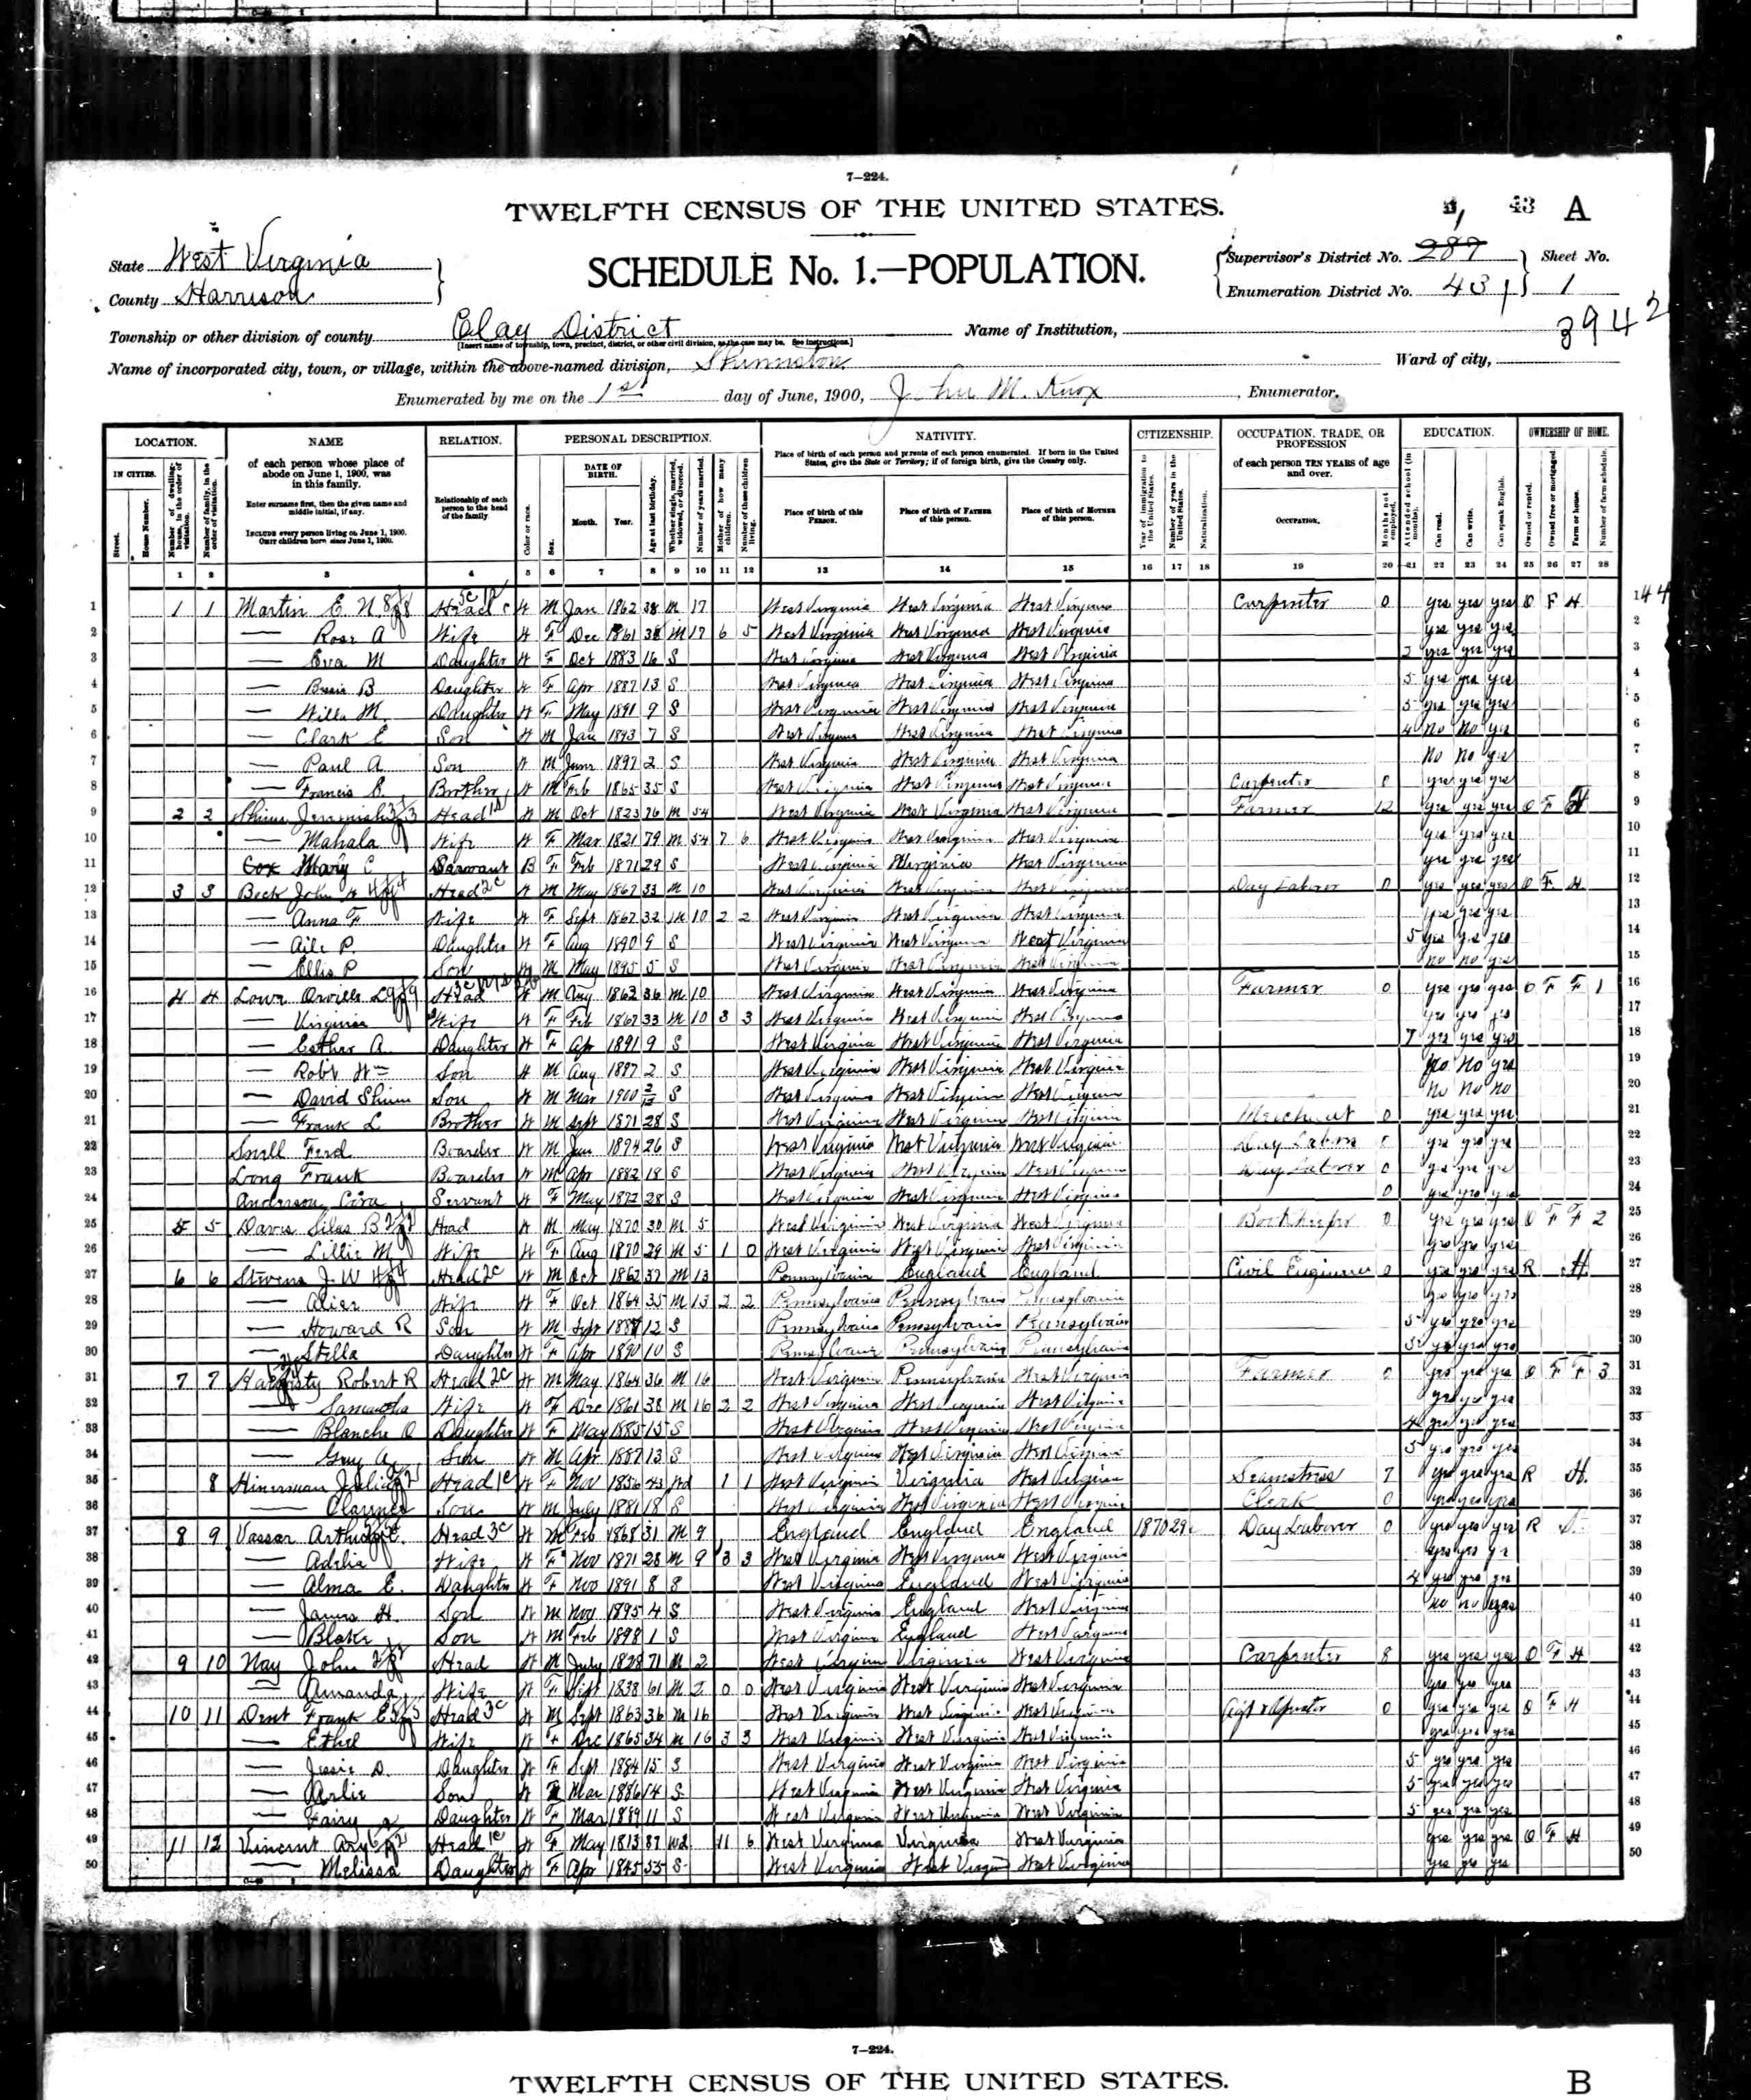 7—224.
TWELFTH CENSUS OF THE UNITED STATES.
43 A
State West Virginia
County Harrison
SCHEDULE No. 1.—POPULATION.
Supervisor's District No. 289
Enumeration District No. 43
Sheet No. 1
3942
Township or other division of county Clay District
[Insert name of township, town, precinct, district, or other civil division, as the case may be. See instructions.]
Name of Institution,
Name of incorporated city, town, or village, within the above-named division, Shinnston
Ward of city,
Enumerated by me on the 1st day of June, 1900, John M. Knox, Enumerator.
LOCATION. NAME RELATION. PERSONAL DESCRIPTION. NATIVITY. CITIZENSHIP. OCCUPATION, TRADE, OR PROFESSION EDUCATION. OWNERSHIP OF HOME.
IN CITIES. Street. House Number. Number of dwelling-house, in the order of visitation. Number of family, in the order of visitation.
of each person whose place of abode on June 1, 1900, was in this family.
Enter surname first, then the given name and middle initial, if any.
INCLUDE every person living on June 1, 1900. OMIT children born since June 1, 1900.
Relationship of each person to the head of the family
Color or race. Sex. DATE OF BIRTH. Month. Year. Age at last birthday. Whether single, married, widowed, or divorced. Number of years married. Mother of how many children. Number of these children living.
Place of birth of each person and parents of each person enumerated. If born in the United States, give the State or Territory; if of foreign birth, give the Country only.
Place of birth of this PERSON. Place of birth of FATHER of this person. Place of birth of MOTHER of this person.
Year of immigration to the United States. Number of years in the United States. Naturalization.
of each person TEN YEARS of age and over. OCCUPATION. Months not employed.
Attended school (in months). Can read. Can write. Can speak English.
Owned or rented. Owned free or mortgaged. Farm or house. Number of farm schedule.
1 2 3 4 5 6 7 8 9 10 11 12 13 14 15 16 17 18 19 20 21 22 23 24 25 26 27 28
1 1 1 Martin E. N. Head W M Jan 1862 38 M 17 West Virginia West Virginia West Virginia Carpenter 0 yes yes yes O F H 1
2 — Rosa A Wife W F Dec 1861 38 M 17 6 5 West Virginia West Virginia West Virginia yes yes yes 2
3 — Eva M Daughter W F Oct 1883 16 S West Virginia West Virginia West Virginia yes yes yes 3
4 — B Daughter W F Apr 1887 13 S West Virginia West Virginia West Virginia 5 yes yes yes 4
5 — Willa M. Daughter W F May 1891 9 S West Virginia West Virginia West Virginia 5 yes yes yes 5
6 — Clark E Son W M Jan 1893 7 S West Virginia West Virginia West Virginia 4 no No yes 6
7 — Paul A Son W M June 1897 2 S West Virginia West Virginia West Virginia No no yes 7
8 — Francis Brother W M Feb 1865 35 S West Virginia West Virginia West Virginia Carpenter 0 yes yes yes 8
9 2 2 Shinn Jeremiah Head W M Oct 1823 76 M 54 West Virginia West Virginia West Virginia Farmer 12 yes yes yes O F H 9
10 — Mahala Wife W F Mar 1821 79 M 54 7 6 West Virginia West Virginia West Virginia yes yes yes 10
11 Cox Mary C Servant B F Feb 1871 29 S West Virginia Virginia West Virginia yes yes yes 11
12 3 3 Beck John W Head W M May 1867 33 M 10 West Virginia West Virginia West Virginia Day Laborer 0 yes yes yes O F H 12
13 — Anna F Wife W F Sept 1867 32 M 10 2 2 West Virginia West Virginia West Virginia yes yes yes 13
14 — P. Daughter W F Aug 1890 9 S West Virginia West Virginia West Virginia 5 yes yes yes 14
15 — Ellis P Son W M May 1895 5 S West Virginia West Virginia West Virginia no no yes 15
16 4 4 Lowe Orville L Head W M Aug 1863 36 M 10 West Virginia West Virginia West Virginia Farmer 0 yes yes yes O F F 1 16
17 — Virginia Wife W F Feb 1867 33 M 10 3 3 West Virginia West Virginia West Virginia yes yes yes 17
18 — Esther A. Daughter W F Apr 1891 9 S West Virginia West Virginia West Virginia 7 yes yes yes 18
19 — Robt Wm Son W M Aug 1897 2 S West Virginia West Virginia West Virginia No No yes 19
20 — David Shinn Son W M Mar 1900 2/12 S West Virginia West Virginia West Virginia No No No 20
21 — Frank L Brother W M Sept 1871 28 S West Virginia West Virginia West Virginia Merchant 0 yes yes yes 21
22 Small Ferd Boarder W M Jan 1874 26 S West Virginia West Virginia West Virginia Day Labor yes yes yes 22
23 Long Frank Boarder W M Apr 1882 18 S West Virginia West Virginia West Virginia Day Laborer 0 yes yes yes 23
24 Anderson Cora Servant W F May 1872 28 S West Virginia West Virginia West Virginia 0 yes yes yes 24
25 5 5 Davis Silas B Head W M May 1870 30 M 5 West Virginia West Virginia West Virginia Book Keeper 0 yes yes yes O F F 2 25
26 — Lillie M Wife W F Aug 1870 29 M 5 1 0 West Virginia West Virginia West Virginia yes yes yes 26
27 6 6 Stevens J. W Head W M Oct 1862 37 M 13 Pennsylvania England England Civil Engineer 0 yes yes yes R H 27
28 — Alice Wife W F Oct 1864 35 M 13 2 2 Pennsylvania Pennsylvania Pennsylvania yes yes yes 28
29 — Howard R Son W M Sept 1887 12 S Pennsylvania Pennsylvania Pennsylvania 5 yes yes yes 29
30 — Stella Daughter W F Apr 1890 10 S Pennsylvania Pennsylvania Pennsylvania 5 yes yes yes 30
31 7 7 Robert R Head W M May 1864 36 M 16 West Virginia Pennsylvania West Virginia Farmer 0 yes yes yes O F F 3 31
32 — Samantha Wife W F Dec 1861 38 M 16 2 2 West Virginia West Virginia West Virginia yes yes yes 32
33 — Blanche O Daughter W F May 1885 15 S West Virginia West Virginia West Virginia 4 yes yes yes 33
34 — Guy A. Son W M Apr 1887 13 S West Virginia West Virginia West Virginia 5 yes yes yes 34
35 8 Hinerman Julia Head W F Nov 1856 43 Wd 1 1 West Virginia Virginia West Virginia Seamstress 7 yes yes yes R H 35
36 — Clarence Son W M July 1881 18 S West Virginia West Virginia West Virginia Clerk 0 yes yes yes 36
37 8 9 Vassar Arthur Head W M Feb 1868 31 M 9 England England England 1870 29 Day Laborer 0 yes yes yes R 37
38 — Adelia Wife W F Nov 1871 28 M 9 3 3 West Virginia West Virginia West Virginia yes yes yes 38
39 — Alma E. Daughter W F Nov 1891 8 S West Virginia England West Virginia 4 yes yes yes 39
40 — James H. Son W M Nov 1895 4 S West Virginia England West Virginia no no yes 40
41 — Blake Son W M Feb 1898 1 S West Virginia England West Virginia 41
42 9 10 Nay John Head W M July 1828 71 M 2 West Virginia Virginia West Virginia Carpenter 8 yes yes yes O F H 42
43 — Amanda Wife W F Sept 1838 61 M 2 0 0 West Virginia West Virginia West Virginia yes yes yes 43
44 10 11 Dent Frank E Head W M Sept 1863 36 M 16 West Virginia West Virginia West Virginia Agt & Operator 0 yes yes yes O F H 44
45 — Ethel Wife W F Dec 1865 34 M 16 3 3 West Virginia West Virginia West Virginia yes yes yes 45
46 — Jessie D. Daughter W F Sept 1884 15 S West Virginia West Virginia West Virginia 5 yes yes yes 46
47 — Arlie Son W M Mar 1886 14 S West Virginia West Virginia West Virginia 5 yes yes yes 47
48 — Fairy Daughter W F Mar 1889 11 S West Virginia West Virginia West Virginia 5 yes yes yes 48
49 11 12 Vincent Head W F May 1813 87 Wd 11 6 West Virginia Virginia West Virginia yes yes yes O F H 49
50 — Melissa Daughter W F Apr 1845 55 S West Virginia West Virginia West Virginia yes yes yes 50
7—224.
TWELFTH CENSUS OF THE UNITED STATES.
B